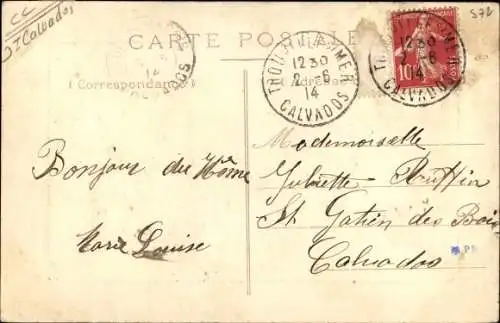 CC
Calvados
CARTE POSTALE
(Correspondance)
Adresse
TROUVILLE S MER
12 30
2 - 6
14
CALVADOS
12 30
2 - 6
14
CALVADOS
10
14
Bonjour du Hôme
Marie Louise
Mademoiselle
Juliette Ruffin
St Gatien des Bois
Calvados